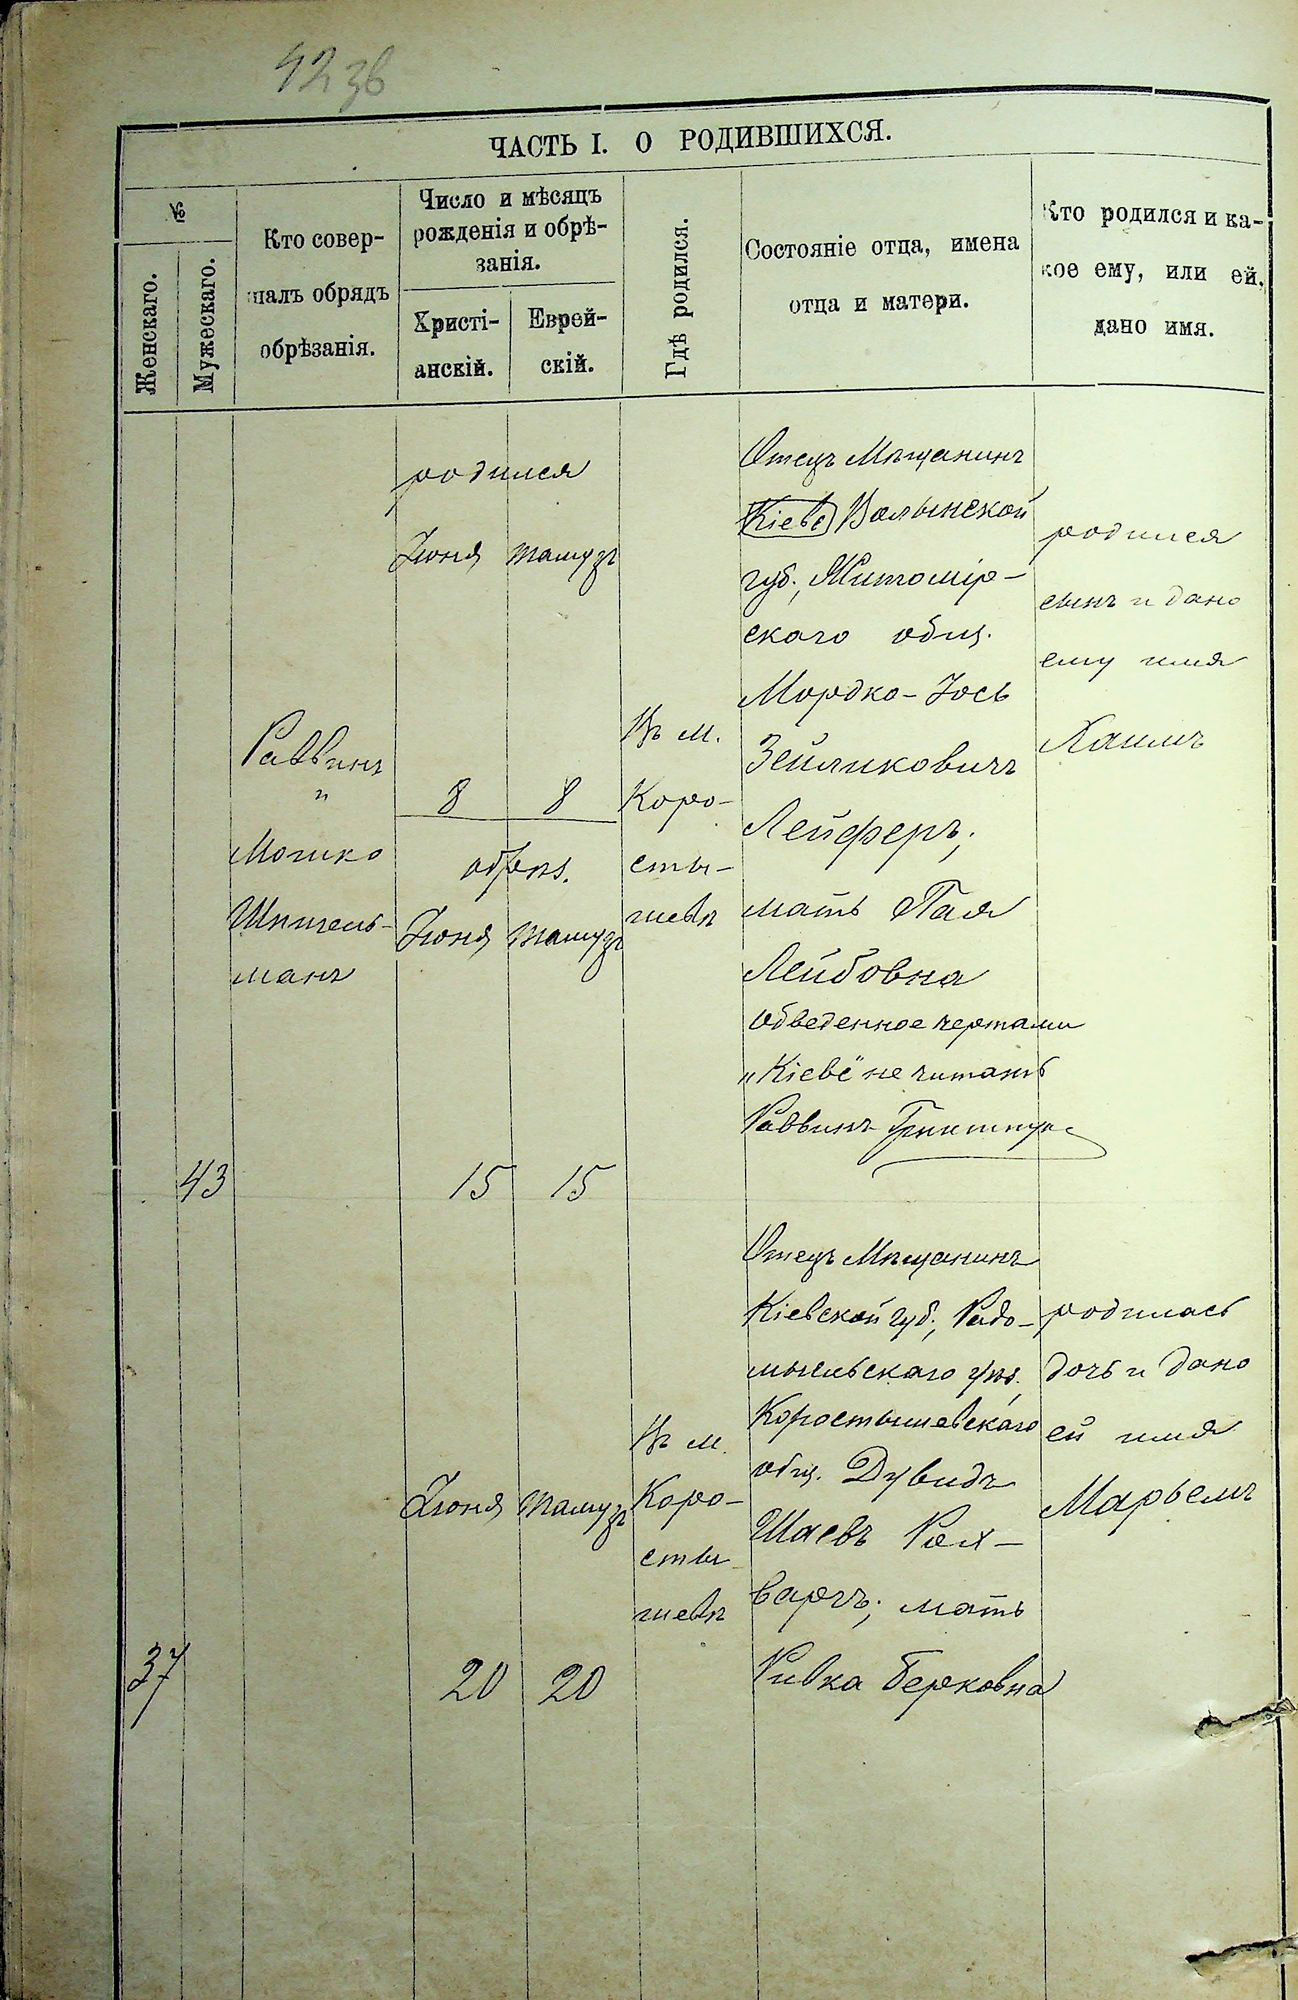 42 зв
ЧАСТЬ I. О РОДИВШИХСЯ.
№
Женскаго.
Мужескаго.
Кто совер-
шалъ обрядъ
обрѣзанія.
Число и мѣсяцъ
рожденія и обрѣ-
занія.
Христі-
анскій.
Еврей-
скій.
Гдѣ родился.
Состояніе отца, имена
отца и матери.
Кто родился и ка-
кое ему, или ей,
дано имя.
43
Раввинъ
и
Мошко
Шпигель-
манъ
родился
Іюня Тамузъ
8 8
обрѣз.
Іюня Тамузъ
15 15
Въ м.
Коро-
сты-
шевѣ
Отецъ Мѣщанинъ
Кіевс Волынской
губ., Житомір-
скаго общ.
Мордко-Іось
Зейликовичъ
Лейферъ;
мать Пая
Лейбовна
обведенное чертами
„Кіевс" не читать
Раввинъ
родился
сынъ и дано
ему имя
Хаимъ
37
Іюня Тамузъ
20 20
Въ м.
Коро-
сты-
шевѣ
Отецъ Мѣщанинъ
Кіевской губ., Радо-
мысльскаго уѣз.,
Коростышевскаго
общ. Дувидъ
Шаевъ Рой-
варгъ; мать
Ривка Берковна
родилась
дочь и дано
ей имя
Марьемъ